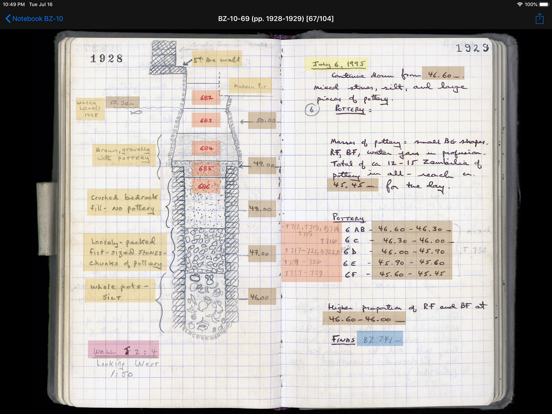 10:49 PM Tue Jul 16
100%
Notebook BZ-10
BZ-10-69 (pp. 1928-1929) [67/104]
1928
Stoa wall
Modern Pit
Water Levels
682
683
50.00
Brown, gravelly with pottery
684
49.00
685
686
Crushed bedrock fill - No pottery
48.00
Loosely-packed fist-sized stones - chunks of pottery
47.00
Whole pots - silt
46.00
Well J 2:4
Looking West
1:50
1929
July 6, 1995
Continue down from 46.60 -
mixed stones, silt, and large
pieces of pottery.
6 Pottery:
Masses of pottery: small BG shapes,
RF, BF, water jars in profusion.
Total of ca 12-15 Zambilia of
pottery in all - reach ca.
45.45 - for the day.
Pottery
6 AB - 46.60 - 46.30 -
6 C - 46.30 - 46.00 -
6 D - 46.00 - 45.90
6 E - 45.90 - 45.60
6 F - 45.60 - 45.45
Higher proportion of RF and BF at
46.60 - 46.00 -
Finds BZ 791 -